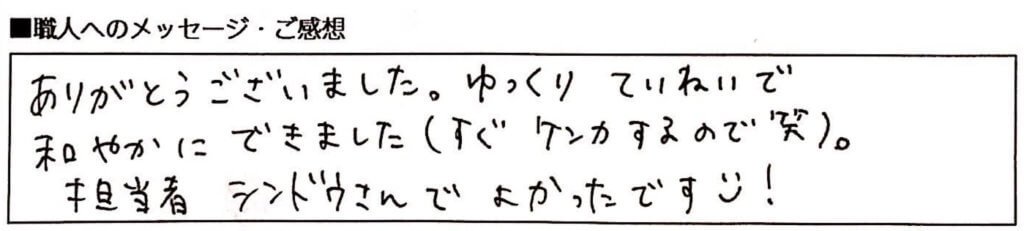 ■職人へのメッセージ・ご感想
ありがとうございました。ゆっくり ていねいで
和やかに できました(すぐ ケンカするので笑)。
担当者 シンドウさんで よかったです!